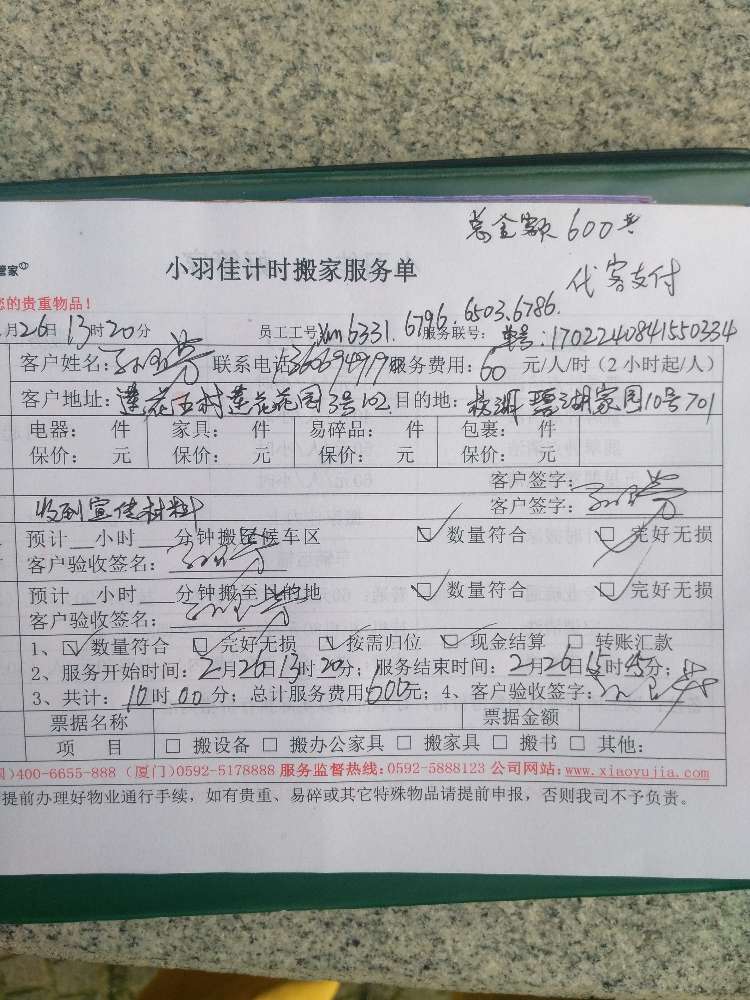 总金额600元
管家
小羽佳计时搬家服务单
代客支付
您的贵重物品！
月26日13时20分 员工工号:xm6331.6796.6503.6786. 服务联号: 单号:1702240841550334
客户姓名: 联系电话 服务费用:60元/人/时（2小时起/人）
客户地址:莲花五村莲花花园3号102 目的地: 碧湖家园10号701
电器: 件 家具: 件 易碎品: 件 包裹: 件
保价: 元 保价: 元 保价: 元 保价: 元
客户签字:
收到宣传材料 客户签字:
预计__小时___分钟搬至候车区 数量符合 完好无损
客户验收签名:
预计__小时___分钟搬至目的地 数量符合 完好无损
客户验收签名:
1、数量符合 完好无损 按需归位 现金结算 转账汇款
2、服务开始时间:2月26日13时20分; 服务结束时间:2月26日15时45分;
3、共计:10时00分; 总计服务费用600元; 4、客户验收签字:
票据名称 票据金额
项 目 □ 搬设备 □ 搬办公家具 □ 搬家具 □ 搬书 □ 其他:
)400-6655-888 (厦门)0592-5178888 服务监督热线:0592-5888123 公司网站:www.xiaoyujia.com
提前办理好物业通行手续，如有贵重、易碎或其它特殊物品请提前申报，否则我司不予负责。